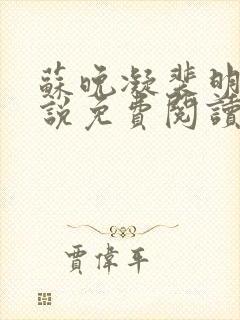 蘇晚凝裴明
說免費閱讀
賈偉平